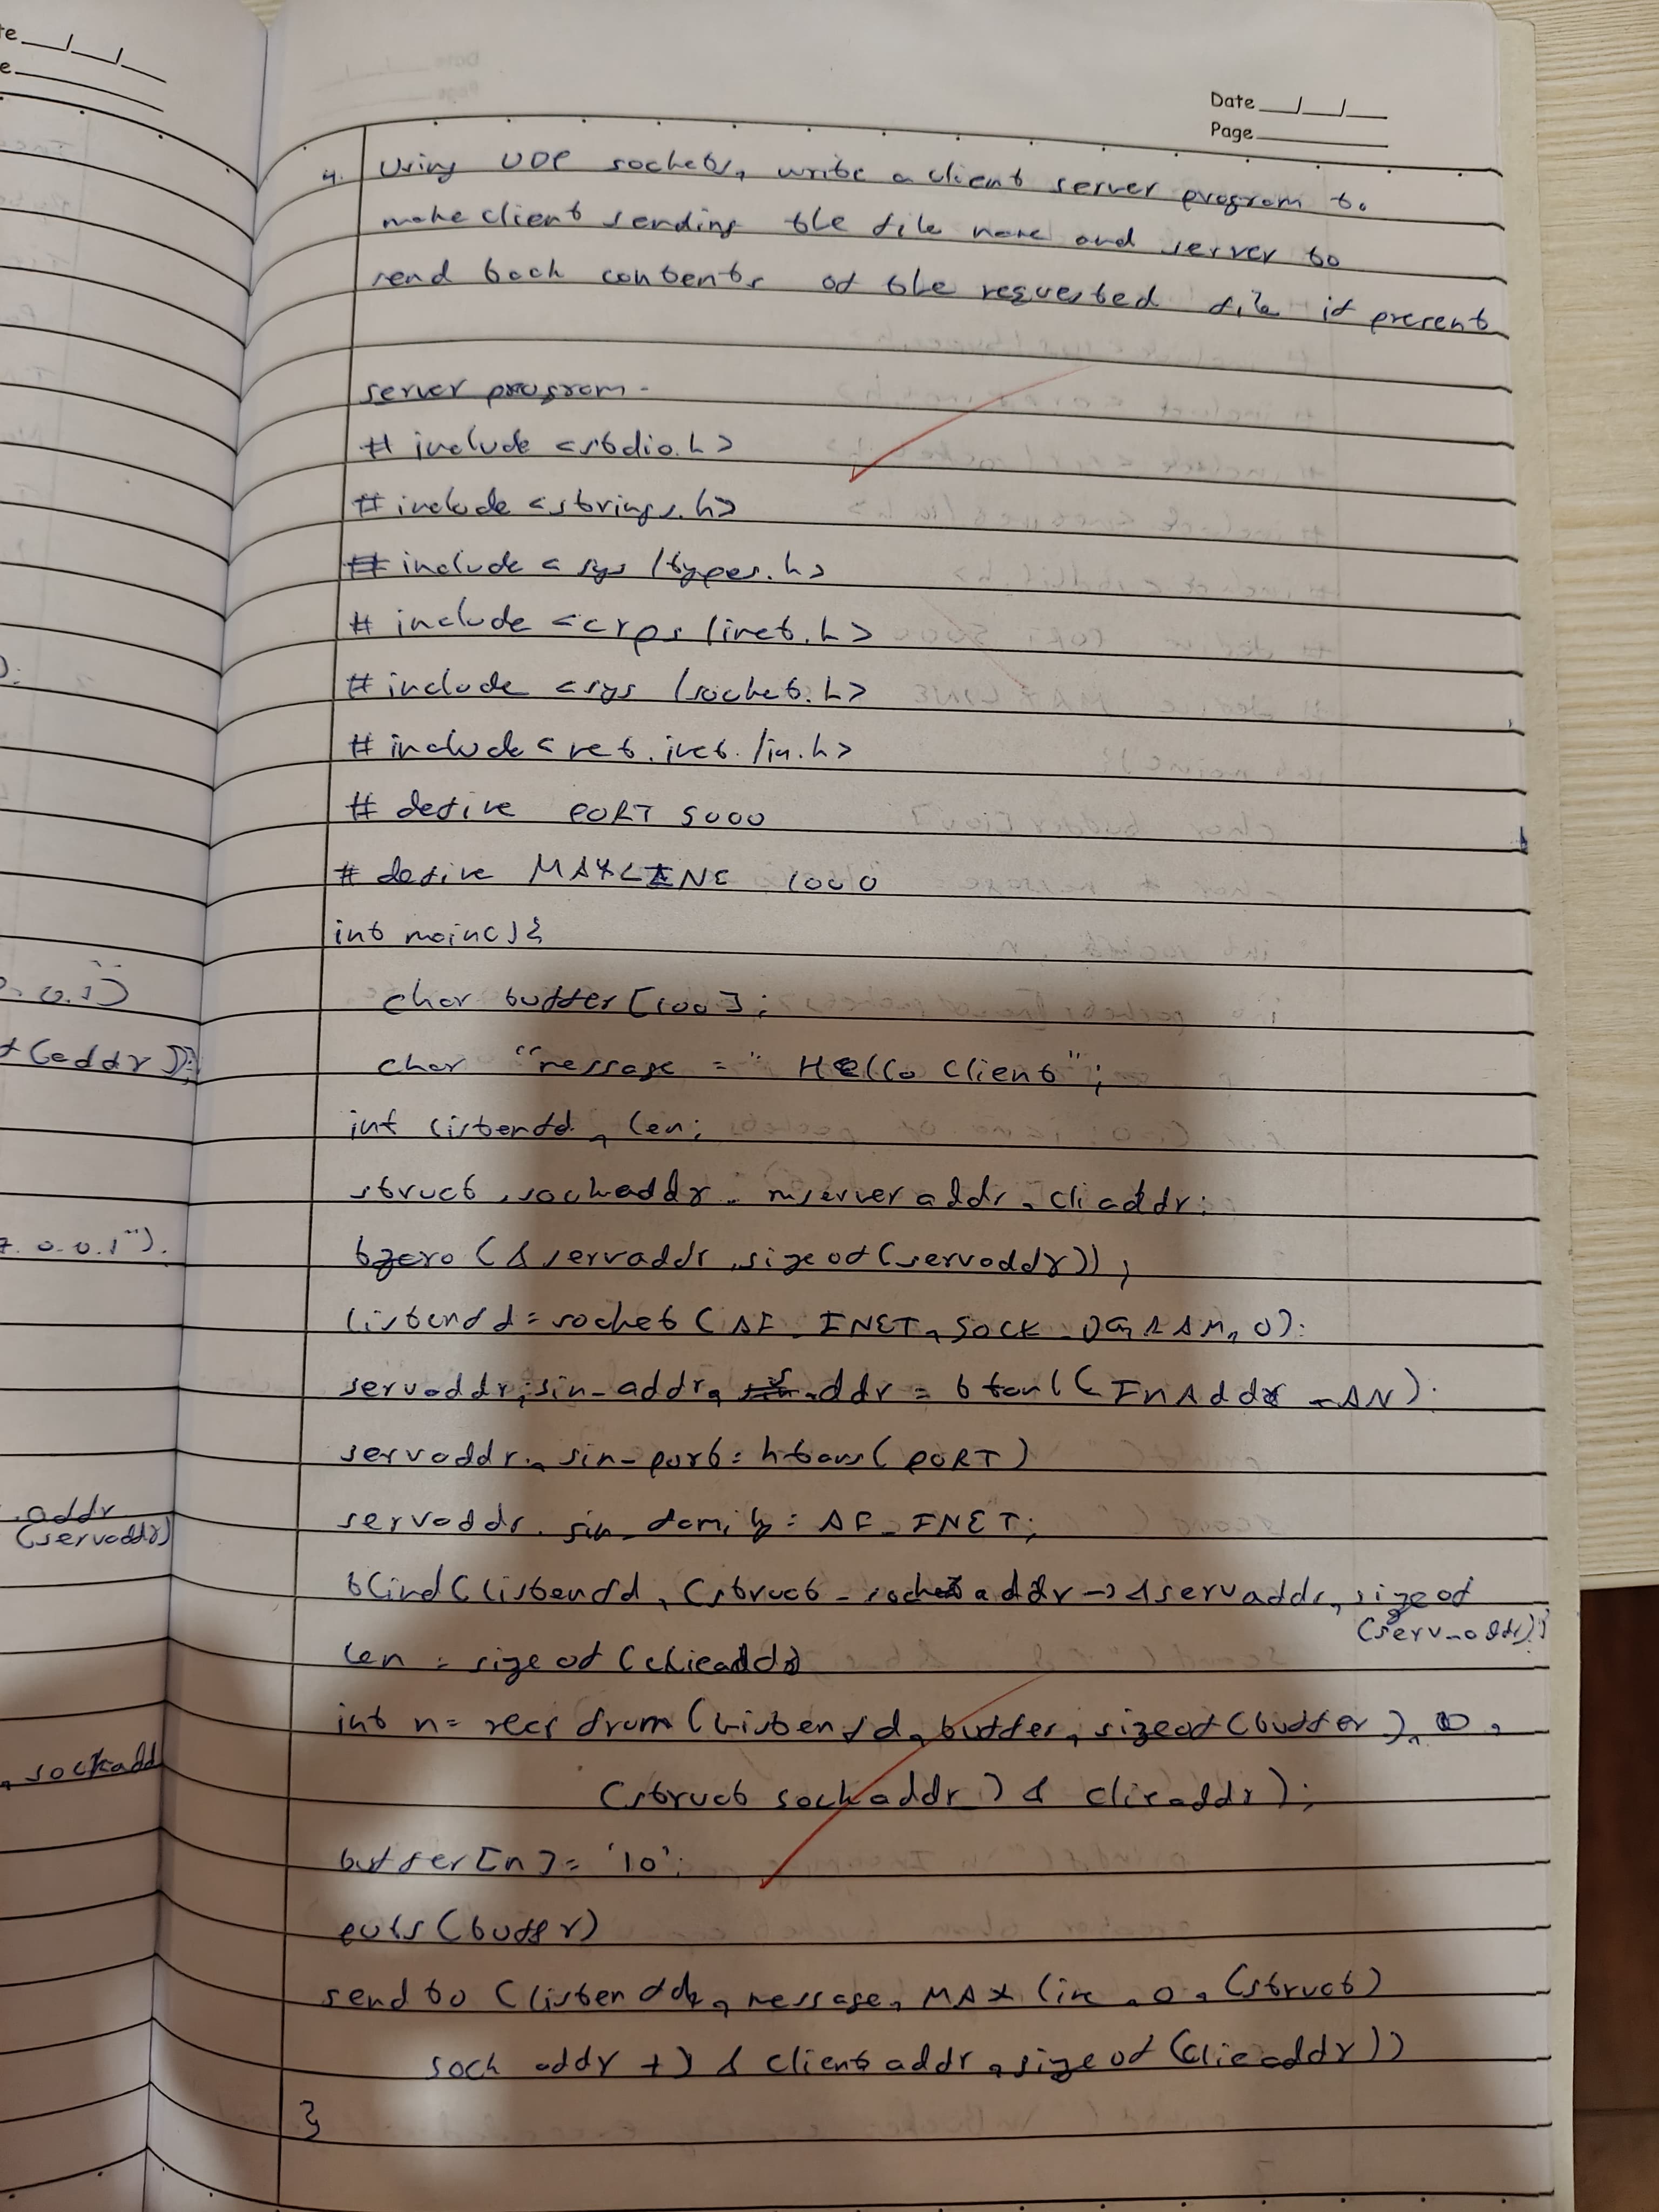 te / /
e
):
0.0.1")
f(addr));
7.0.0.1").
.addr
(servaddr)
, sockadd
Date / /
Page
4. Using UDP sockets, write a client server program to
make client sending the file name and server to
send back contents of the requested file if present
server program -
# include <stdio.h>
# include <strings.h>
# include < sys /types.h>
# include <crpa /inet.h>
# include <sys /socket.h>
# include < net. inet. /in.h>
# define PORT 5000
# define MAXLINE 1000
int main(){
char buffer [100];
char "message = " Hello Client";
int listenfd, len;
struct sockaddr_ mserver addr, cli addr;
bzero (& servaddr, size of (servaddr));
listenfd = socket (AF_INET, SOCK_DGRAM, 0);
servaddr, sin_addr, s.addr = btonl(InAddr_AN);
servaddr. sin_port = htons(PORT)
servaddr. sin_family = AF_INET;
bind (listenfd, (struct_ sockaddr → &servaddr, size of
(serv_addr));
len = size of (clieaddr)
int n= recs from (listenfd, buffer, sizeof (buffer), 0,
(struct sockaddr ) & clieaddr);
buffer [n] = '10';
puts (buffer)
send to (listen fd, message, MAX line, 0, (struct)
sock addr +) & client addr, size of (clieaddr))
}